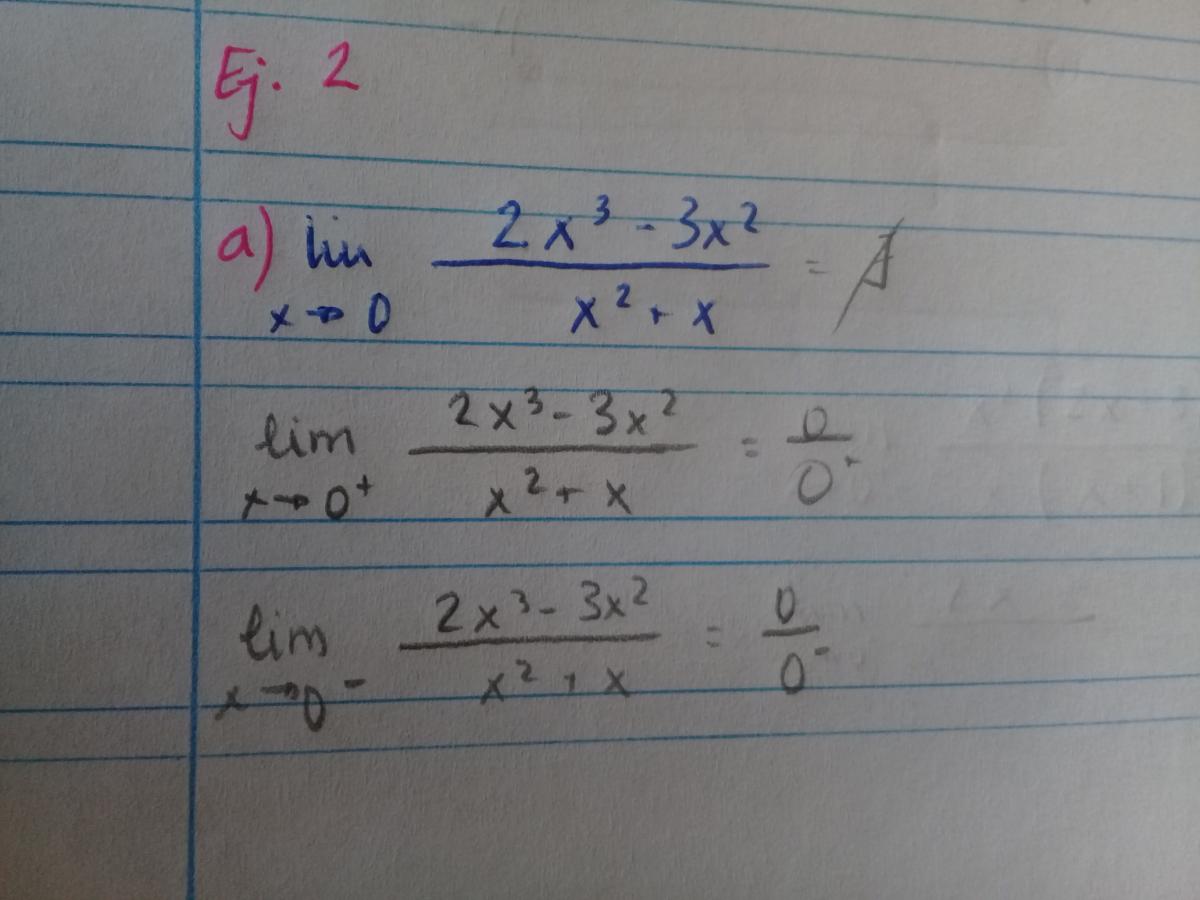 Ej. 2
a) lim x→0 (2x³ - 3x²)/(x² + x) = ∄
lim x→0⁺ (2x³ - 3x²)/(x² + x) = 0/0⁺
lim x→0⁻ (2x³ - 3x²)/(x² + x) = 0/0⁻